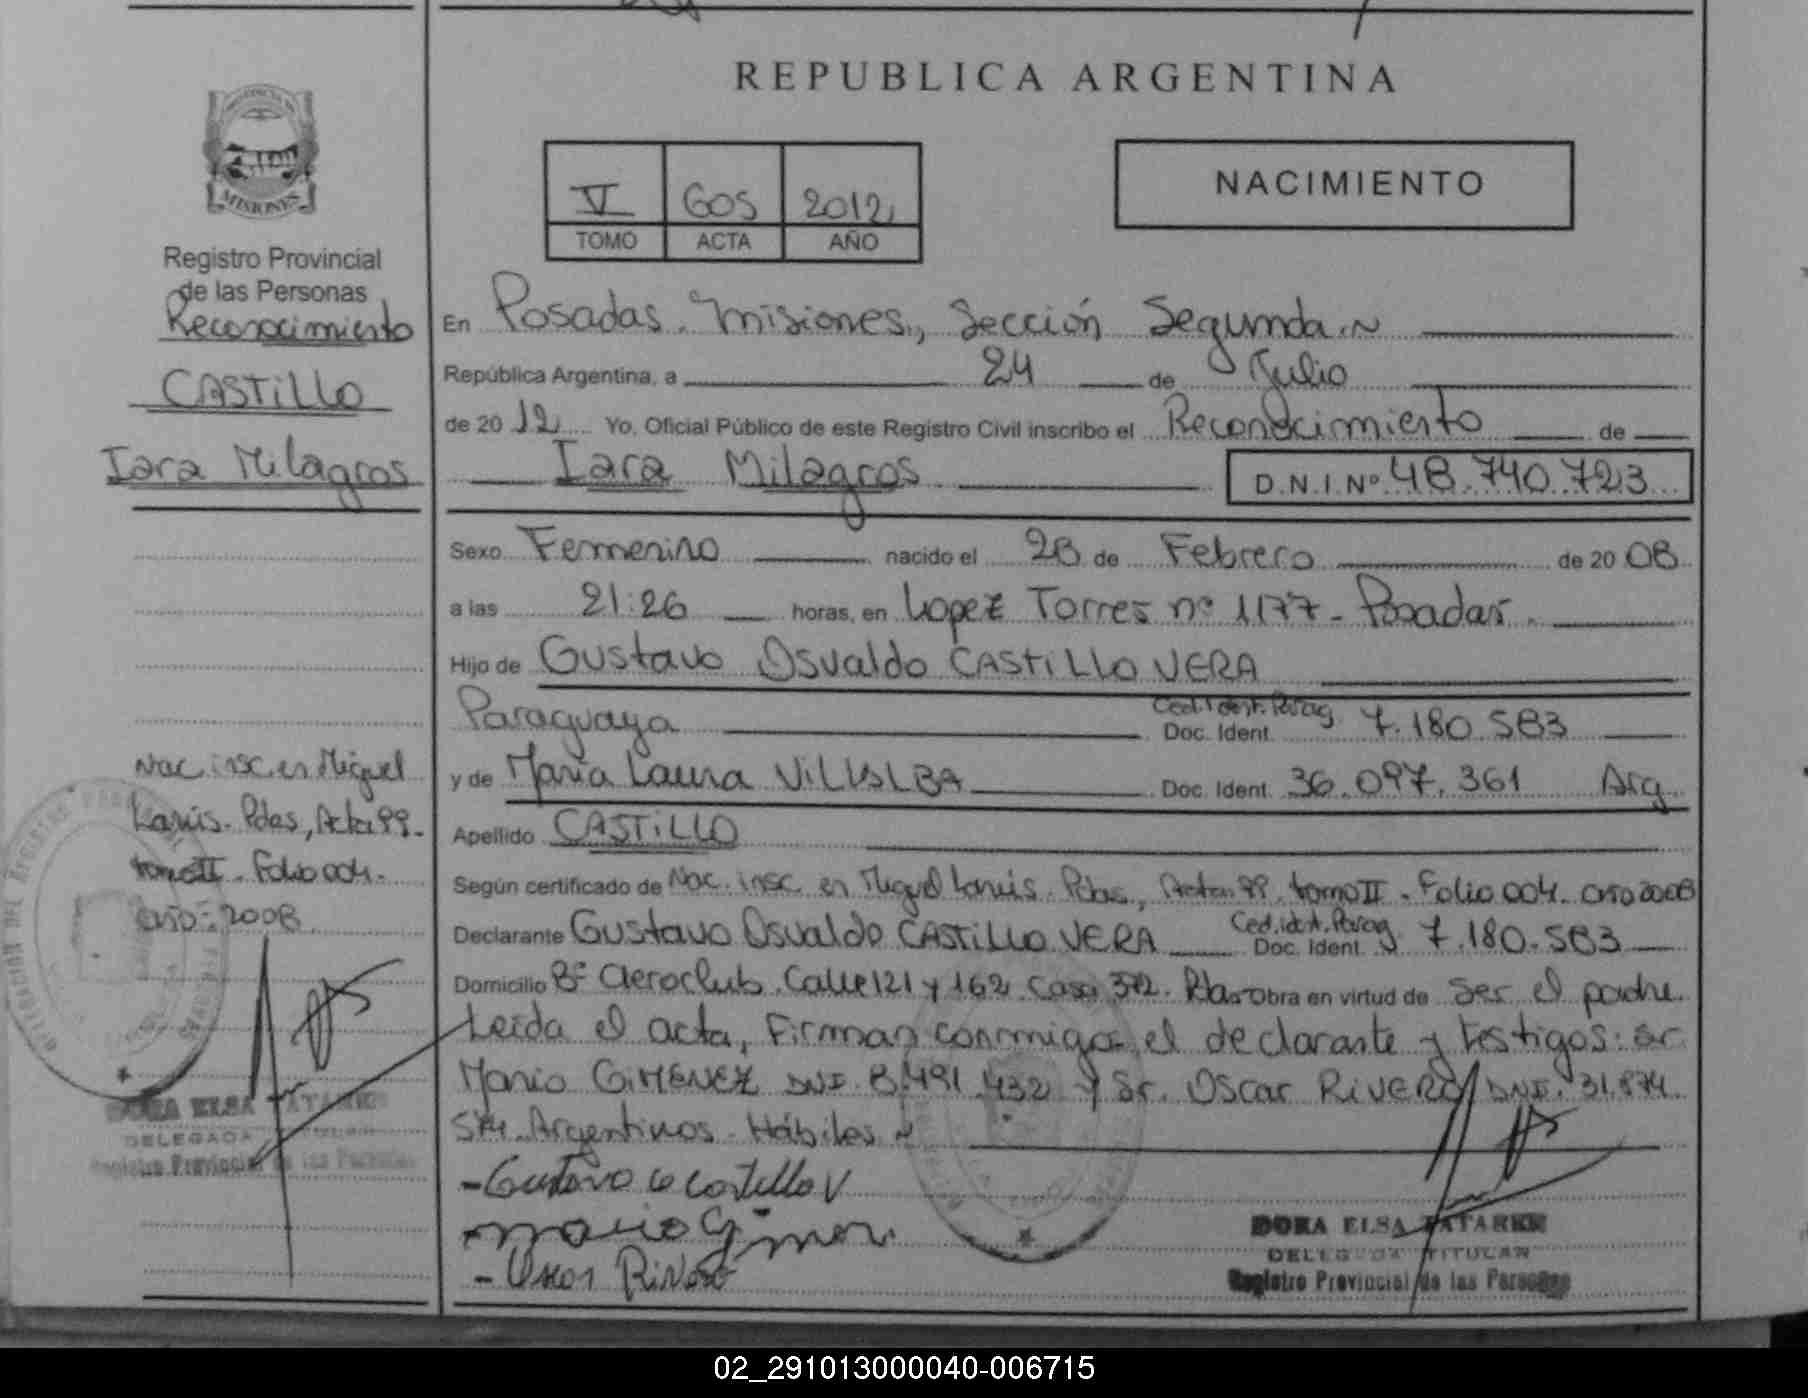 REPUBLICA ARGENTINA
V 605 2012
TOMO ACTA AÑO
NACIMIENTO
MISIONES
Registro Provincial
de las Personas
Reconocimiento
CASTILLO
Iara Milagros
Nac. insc. en Miguel
Lanús. Pdas, Acta 99.
tomo II. Folio 004.
año: 2008
DORA ELSA TATAREN
DELEGADA TITULAR
Registro Provincial de las Personas
En Posadas. Misiones, Sección Segunda.
República Argentina, a 24 de Julio
de 2012 Yo, Oficial Público de este Registro Civil inscribo el Reconocimiento de
Iara Milagros D.N.I. Nº 48.740.723
Sexo Femenino nacido el 28 de Febrero de 2008
a las 21:26 horas, en Lopez Torres nº 1177 - Posadas.
Hijo de Gustavo Osvaldo CASTILLO VERA
Paraguaya Ced. Ident. Parag. Doc. Ident. 7.180.583
y de Maria Laura VILLALBA Doc. Ident. 36.097.361 Arg.
Apellido CASTILLO
Según certificado de Nac. insc. en Miguel Lanús. Pdas., Acta 99. tomo II. Folio 004. año 2008
Declarante Gustavo Osvaldo CASTILLO VERA Ced. ident. Parag. Doc. Ident. 7.180.583
Domicilio Bº Aeroclub. Calle 121 y 162. Casa 372. Pdas. obra en virtud de ser el padre
Leída el acta, Firman conmigo el declarante y testigos: Sr.
Mario GIMENEZ DNI. 8.491.432 y Sr. Oscar RIVERO DNI. 31.874.
574. Argentinos. Hábiles
- Gustavo Castillo V
- Mario Gimenez
- Oscar Rivero
DORA ELSA TATAREN
DELEGADA TITULAR
Registro Provincial de las Personas
02_291013000040-006715